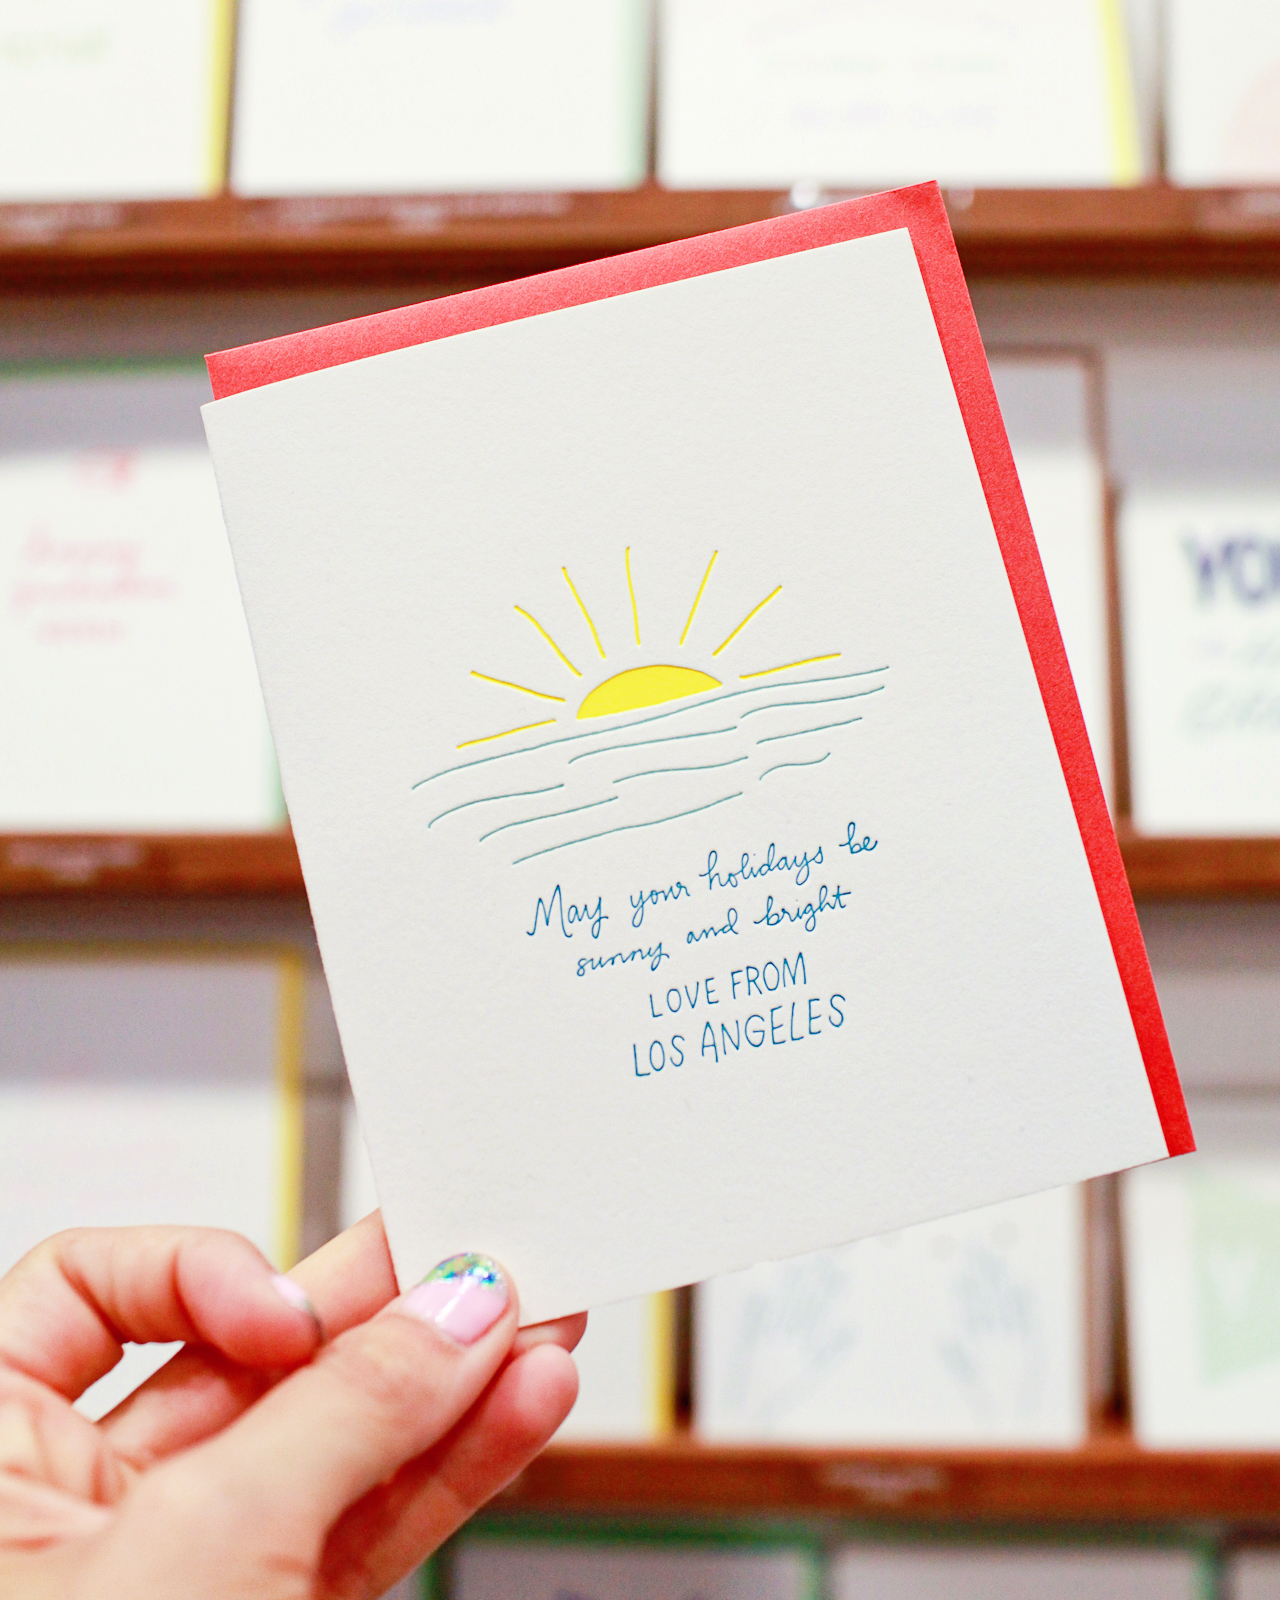 May your holidays be
sunny and bright
LOVE FROM
LOS ANGELES